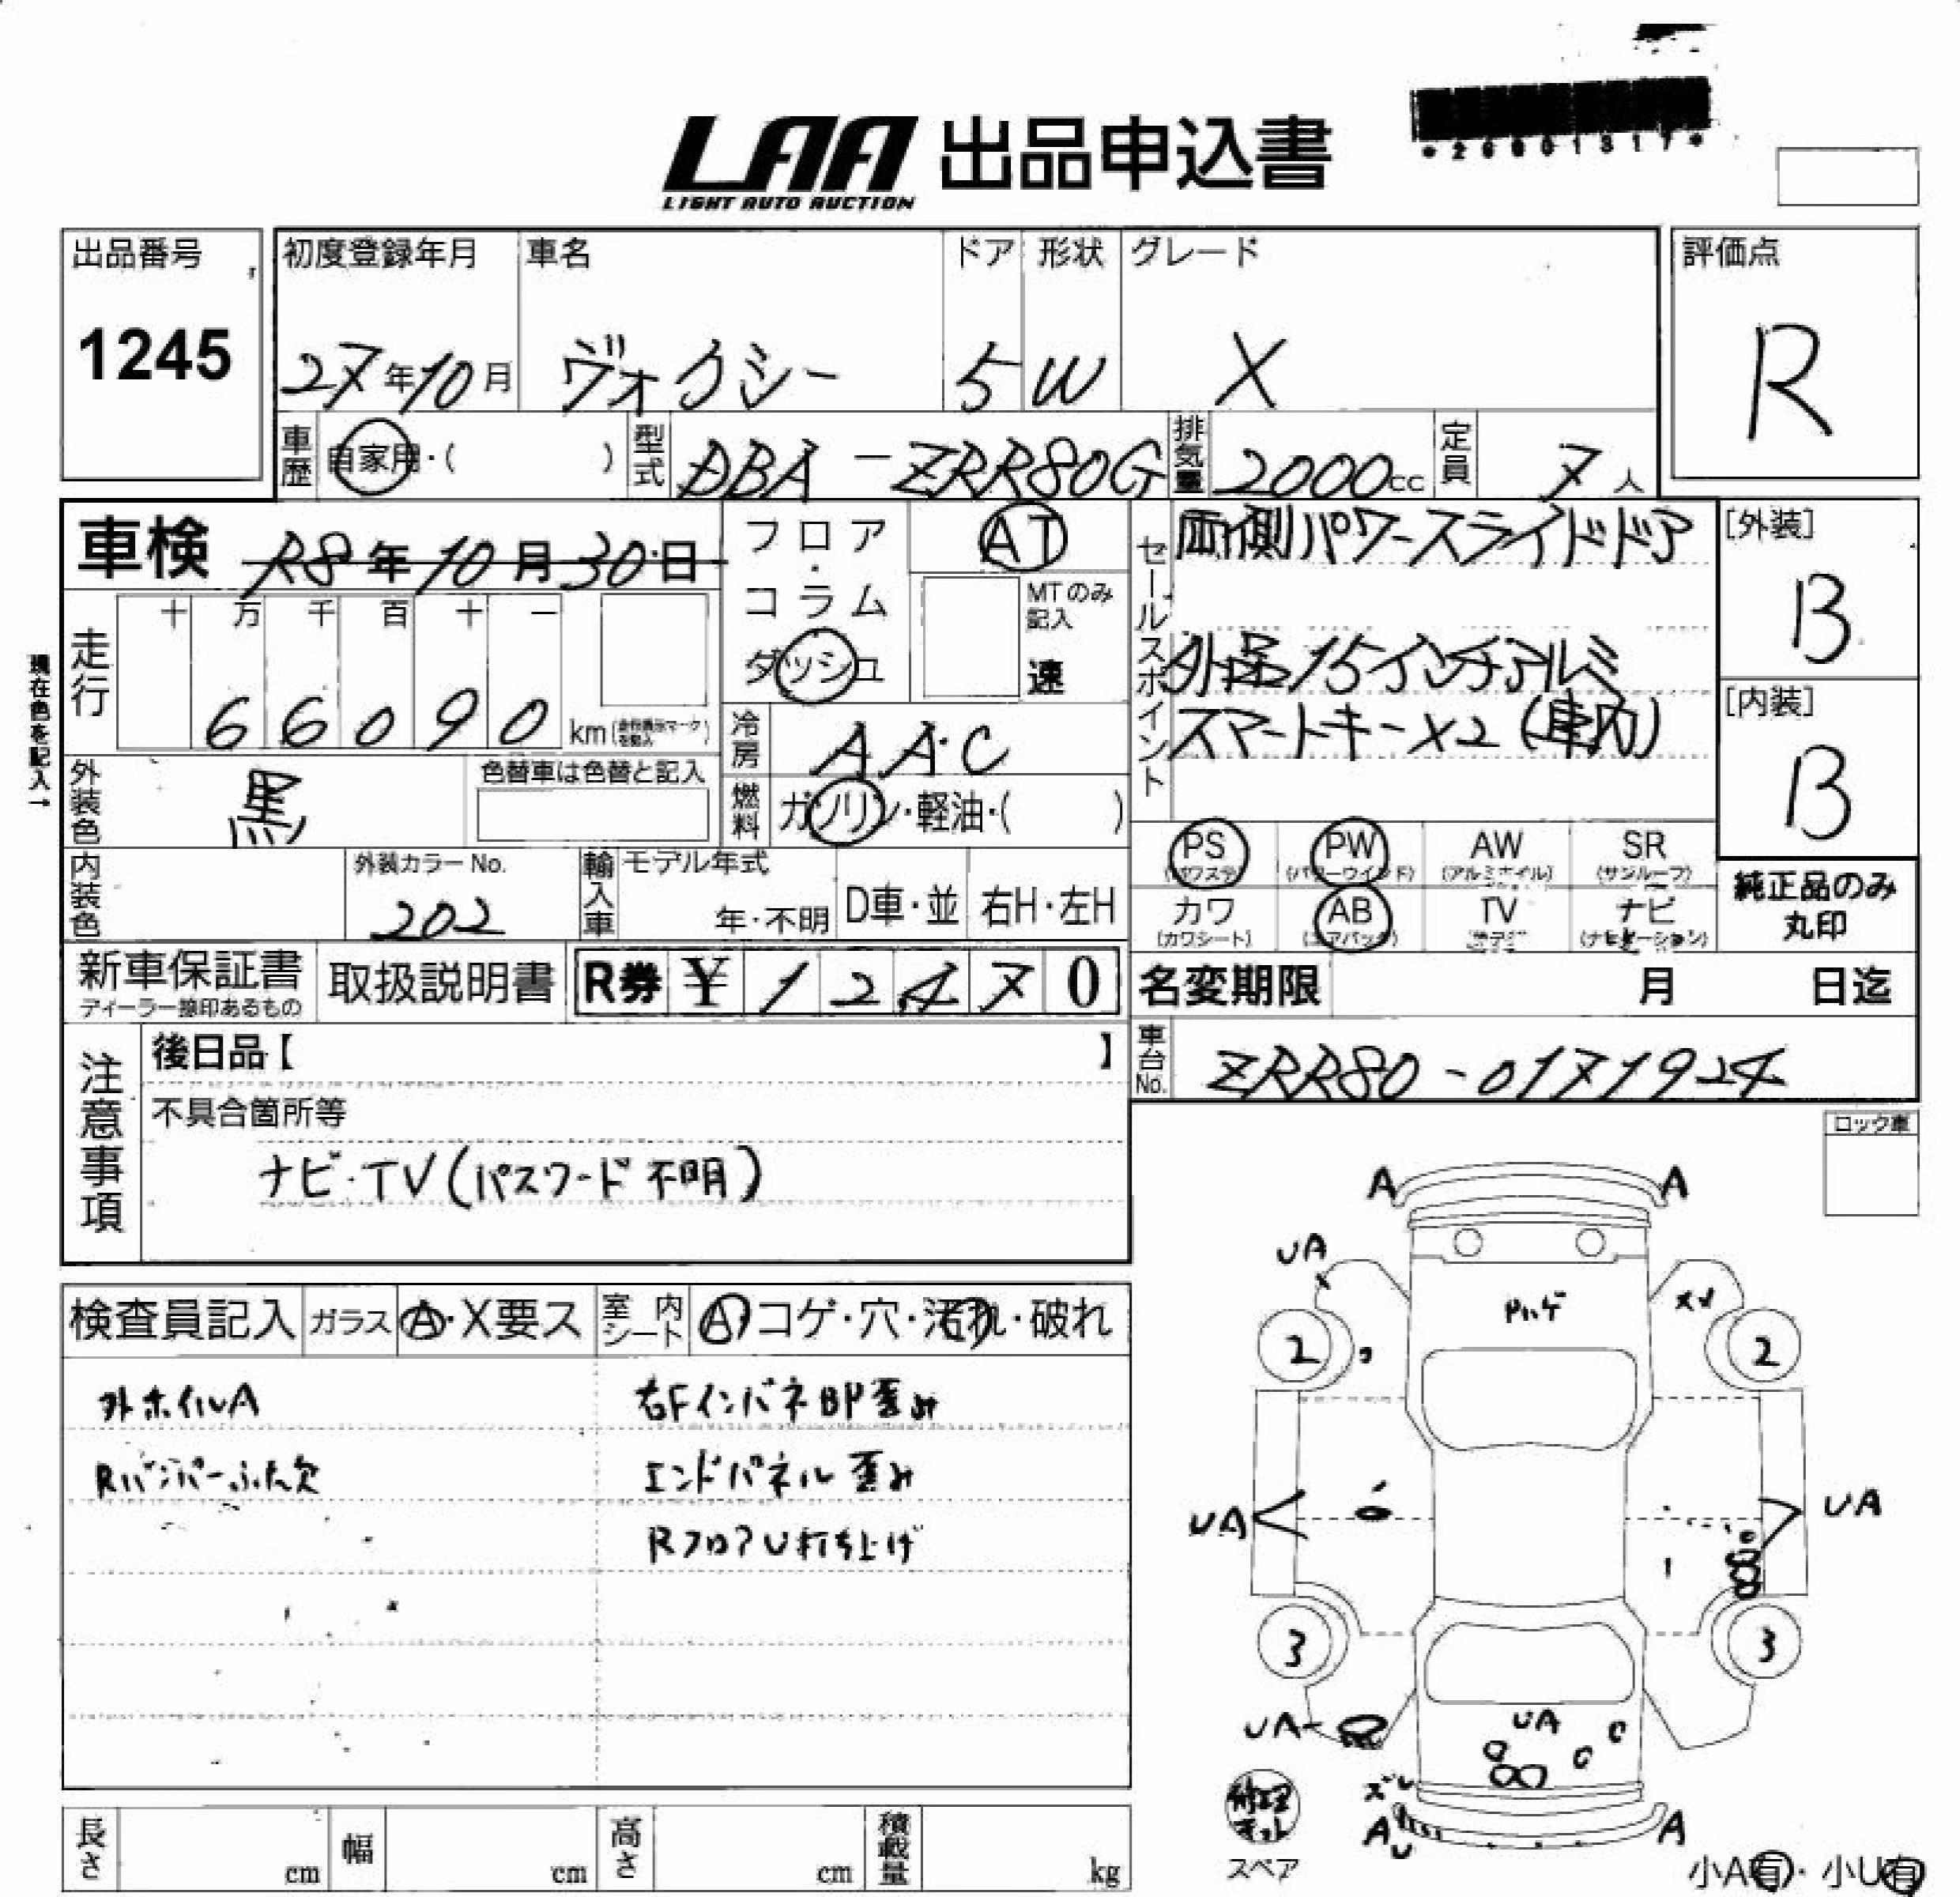 *26001317*
LAA 出品申込書
LIGHT AUTO AUCTION
出品番号
1245
初度登録年月 車名 ドア 形状 グレード
27年10月 ヴォクシー 5 W X
評価点
R
車歴 自家用・( ) 型式 DBA-ZRR80G 排気量 2000cc 定員 7人
車検 R8年10月30日
フロア・コラム ダッシュ
AT
MTのみ記入
速
セールスポイント
両側パワースライドドア
外品15インチアルミ
スマートキーX2(車内)
[外装]
B
[内装]
B
現在色を記入→
走行
十 万 千 百 十 一
66090 km
冷房 AAC
外装色 黒 色替車は色替と記入
燃料 ガソリン・軽油・( )
PS (パワステ) PW (パワーウインド) AW (アルミホイル) SR (サンルーフ)
カワ (カワシート) AB (エアバック) TV ナビ (ナビゲーション)
純正品のみ丸印
内装色 外装カラーNo. 202
輸入車 モデル年式 年・不明 D車・並 右H・左H
新車保証書 ディーラー捺印あるもの
取扱説明書
R券 ¥12470
名変期限 月 日迄
車台No. ZRR80-0171924
注意事項
後日品【 】
不具合箇所等
ナビ・TV(パスワード不明)
ロック車
検査員記入 ガラス A・X要ス 室内シート A コゲ・穴・汚れ・破れ
外ホイルA 右FインパネBP歪み
Rバンパーふた欠 エンドパネル歪み
RフロアU打ち上げ
A A
UA
Pハゲ
XX
2 2
UA UA
3 3
UA
UA
ズレ
A U A
修理キット
スペア
小A有・小U有
長さ cm 幅 cm 高さ cm 積載量 kg